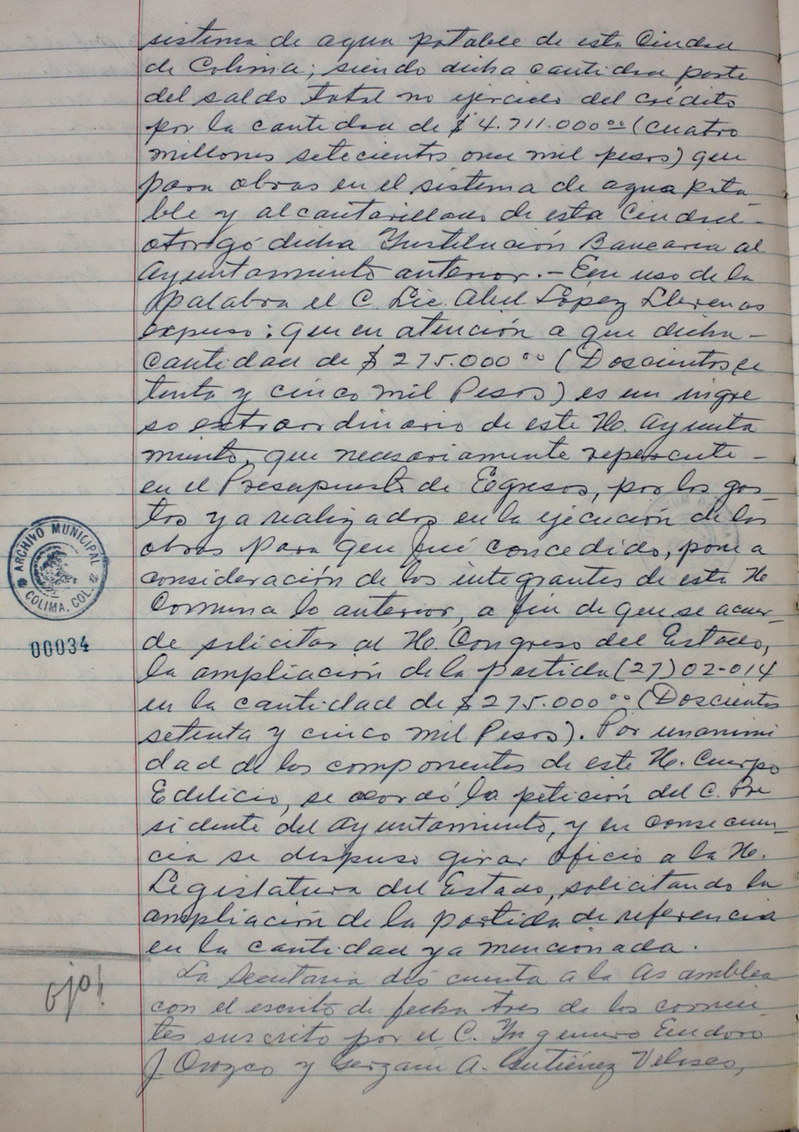 sistema de agua potable de esta Ciudad
de Colima; siendo dicha cantidad parte
del saldo total no ejercido del crédito
por la cantidad de $4.711.000.00 (cuatro
millones setecientos once mil pesos) que
para obras en el sistema de agua pota
ble y alcantarillado de esta Ciudad-
otorgó dicha Institución Bancaria al
Ayuntamiento anterior.- En uso de la
palabra el C. Lic. Abel López Llerenas
expuso: que en atención a que dicha-
cantidad de $275.000.00 (Doscientos se
tenta y cinco mil Pesos) es un ingre
so extraordinario de este H. Ayunta
miento, que necesariamente repercute-
en el Presupuesto de Egresos, por los gas-
tos ya realizados en la ejecución de las
obras para que fué concedido, pone a
consideración de los integrantes de este H.
Comuna lo anterior, a fin de que se acuer-
de solicitar al H. Congreso del Estado,
la ampliación de la partida (27) 02-014
en la cantidad de $275.000.00 (Doscientos
setenta y cinco mil Pesos). Por unanimi
dad de los componentes de este H. Cuerpo
Edilicio, se acordó la petición del C. Pre
sidente del Ayuntamiento, y en consecuen-
cia se dispuso girar oficio a la H.
Legislatura del Estado, solicitando la
ampliación de la partida de referencia
en la cantidad ya mencionada.
La Secretaria dió cuenta a la Asamblea
con el escrito de fecha tres de los corrien-
tes suscrito por el C. Ingeniero Eudoro
J. Orozco y A. Gutiérrez Velasco,
ARCHIVO MUNICIPAL
COLIMA, COL.
00034
ojo!